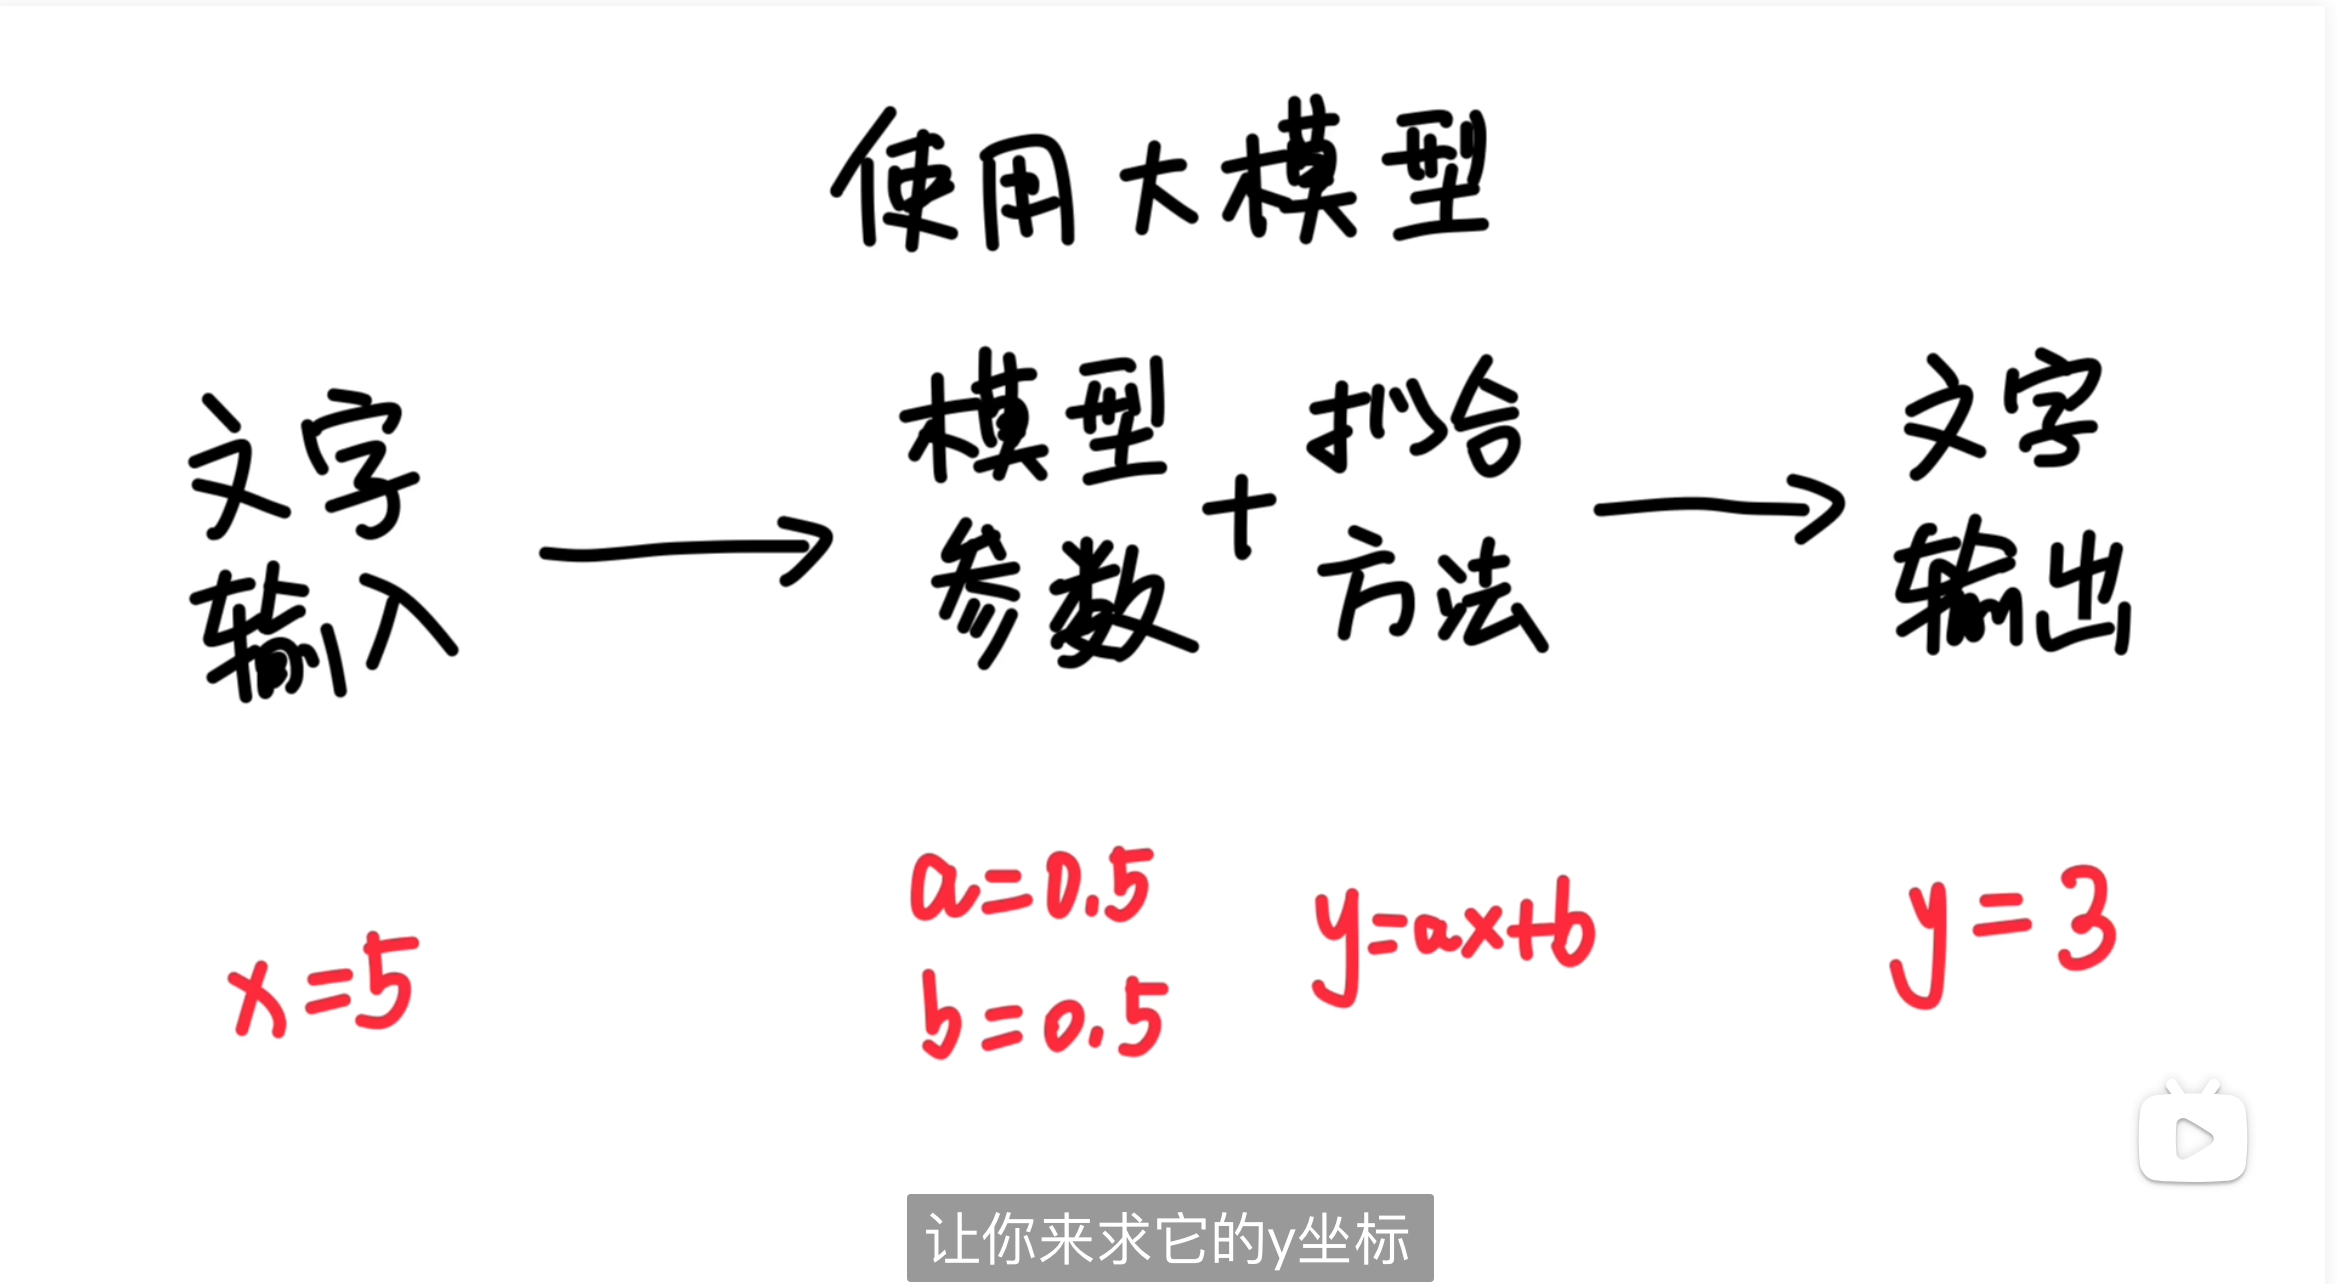 使用大模型
文字
输入
模型
参数
+
拟合
方法
文字
输出
x=5
a=0.5
b=0.5
y=ax+b
y=3
让你来求它的y坐标